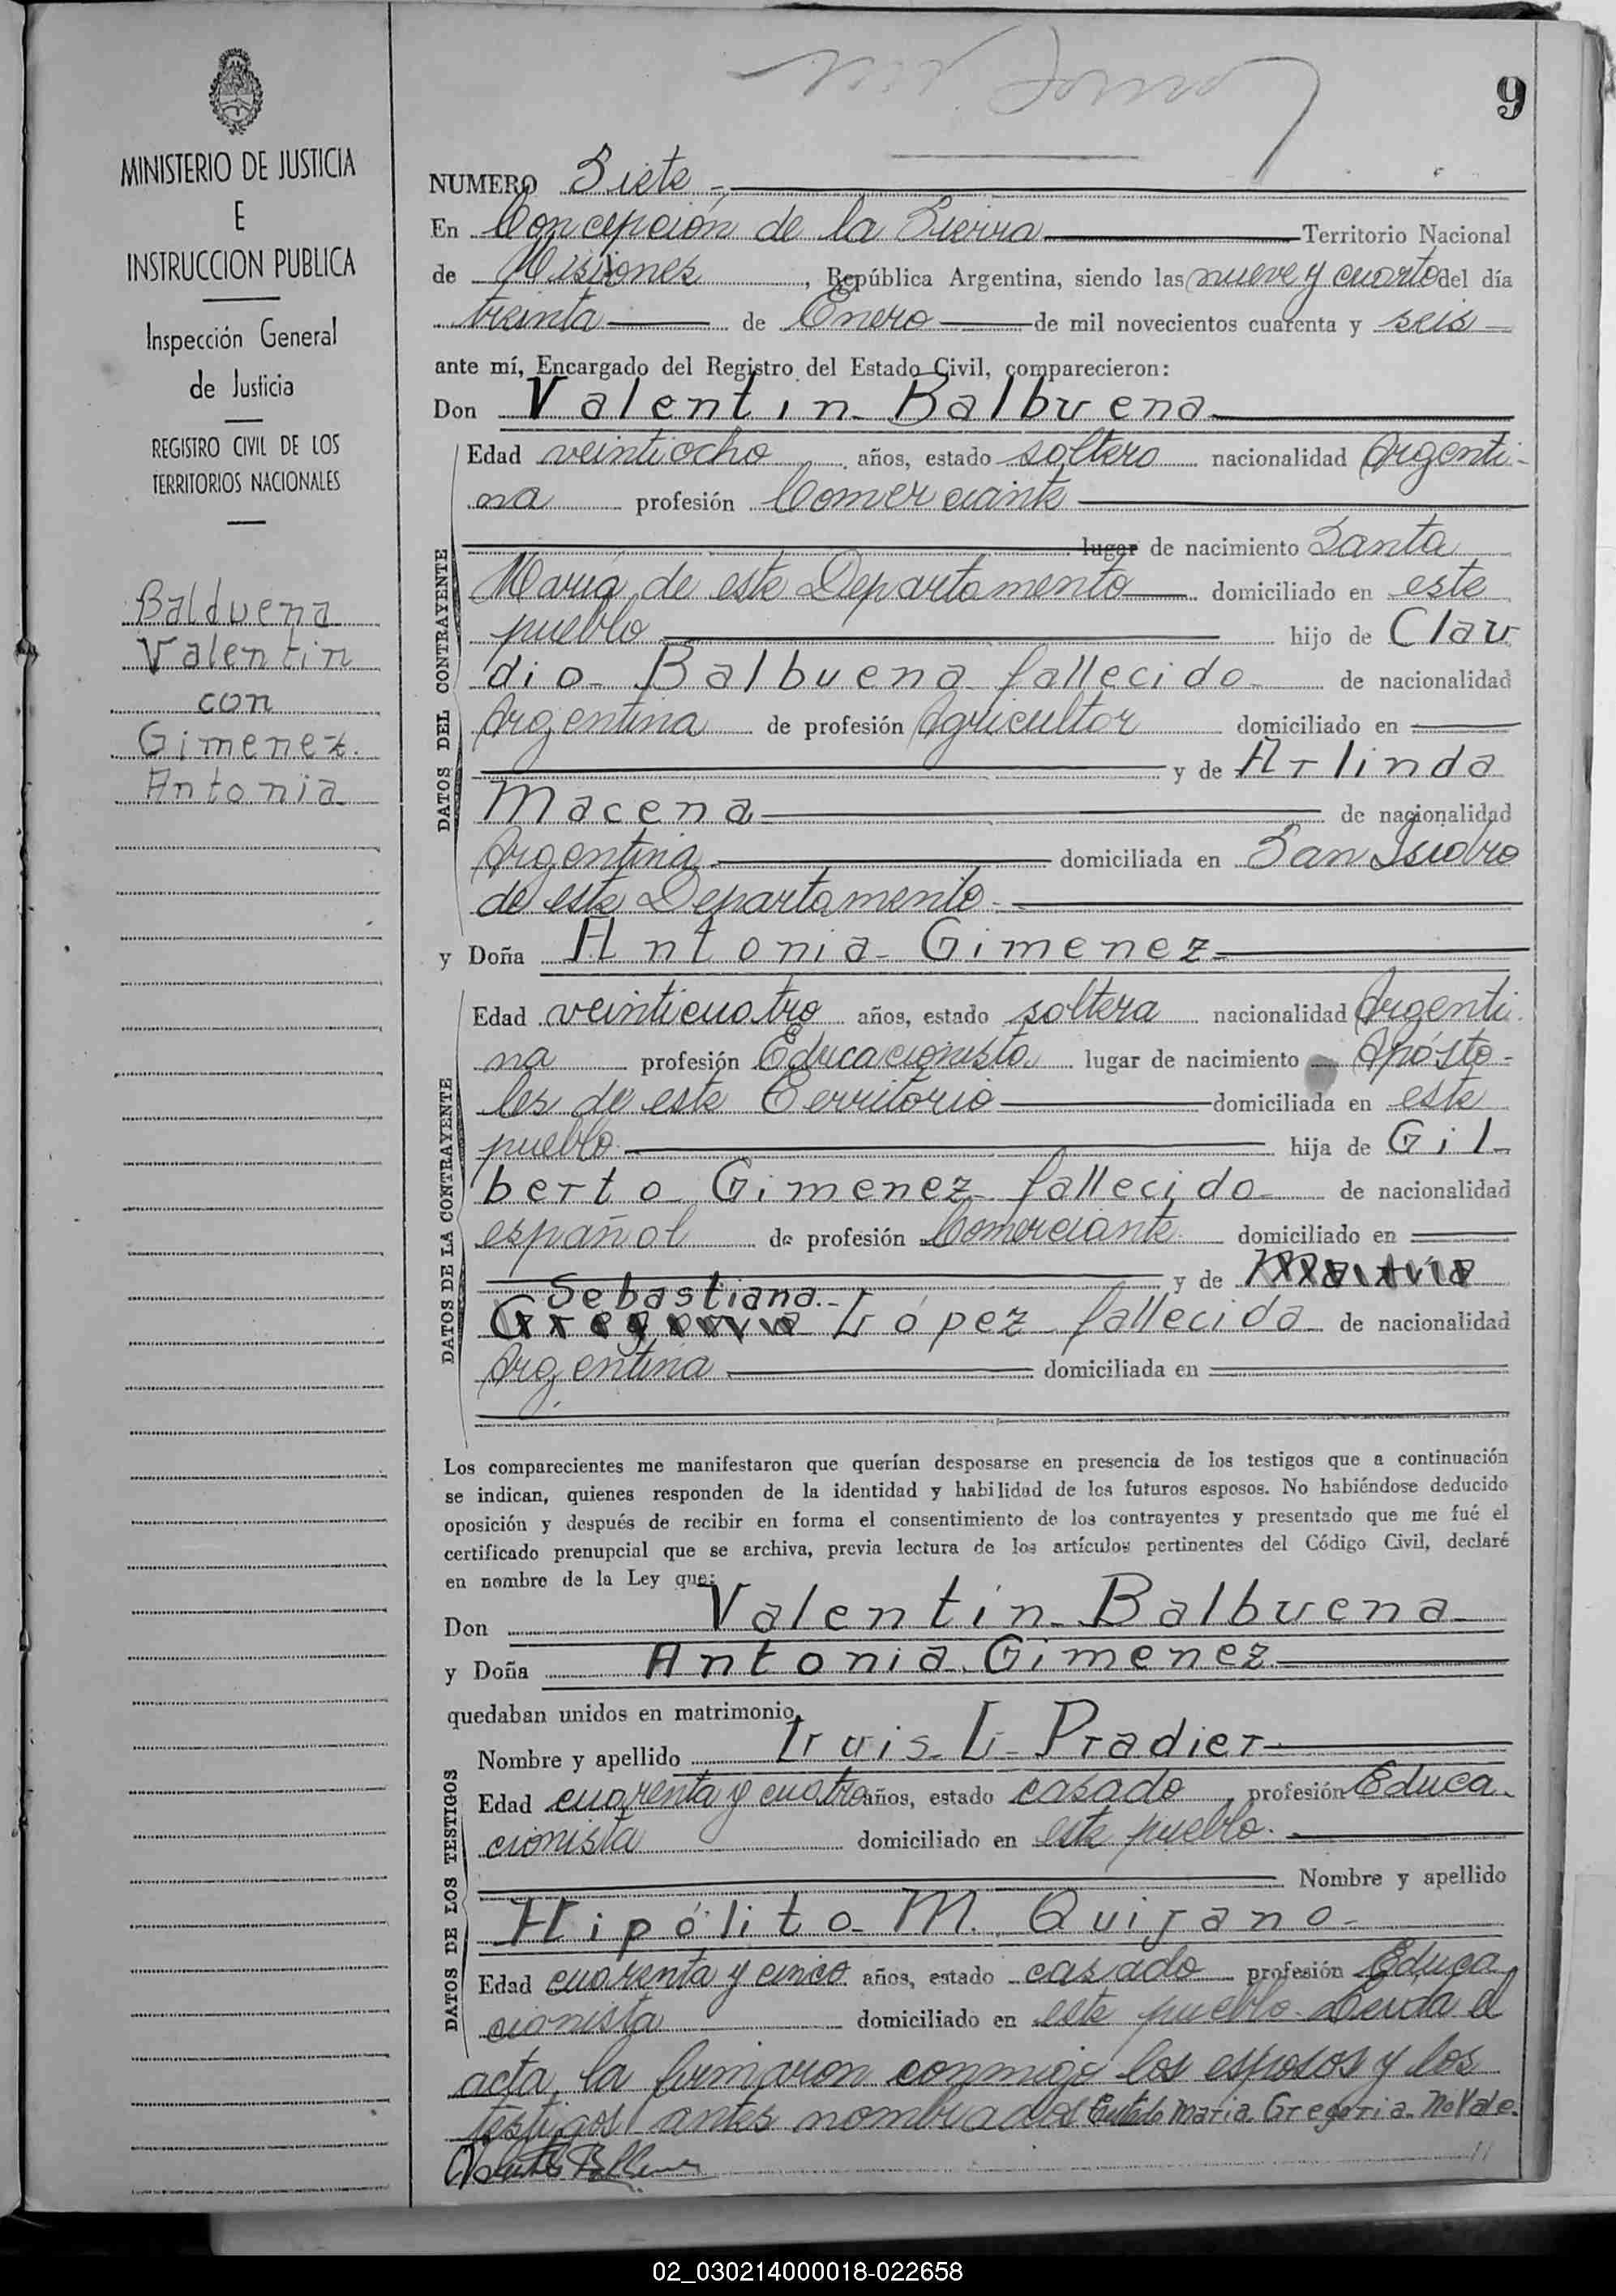 9
MINISTERIO DE JUSTICIA
E
INSTRUCCION PUBLICA
Inspección General
de Justicia
REGISTRO CIVIL DE LOS
TERRITORIOS NACIONALES
Balbuena
Valentin
con
Gimenez.
Antonia
NUMERO Siete
En Concepción de la Sierra Territorio Nacional
de Misiones, República Argentina, siendo las nueve y cuarto del día
treinta de Enero de mil novecientos cuarenta y seis
ante mí, Encargado del Registro del Estado Civil, comparecieron:
Don Valentin Balbuena
DATOS DEL CONTRAYENTE
Edad veintiocho años, estado soltero nacionalidad Argenti-
na profesión Comerciante
lugar de nacimiento Santa
María de este Departamento domiciliado en este
pueblo hijo de Clau
dio Balbuena fallecido de nacionalidad
Argentina de profesión Agricultor domiciliado en
y de Arlinda
Macena de nacionalidad
Argentina domiciliada en San Isidro
de este Departamento
y Doña Antonia Gimenez
DATOS DE LA CONTRAYENTE
Edad veinticuatro años, estado soltera nacionalidad Argenti
na profesión Educacionista lugar de nacimiento Apósto-
les de este Territorio domiciliada en este
pueblo hija de Gil-
berto Gimenez fallecido de nacionalidad
español de profesión Comerciante domiciliado en
y de Maria
Sebastiana
Gregoria López fallecida de nacionalidad
Argentina domiciliada en
Los comparecientes me manifestaron que querían desposarse en presencia de los testigos que a continuación
se indican, quienes responden de la identidad y habilidad de los futuros esposos. No habiéndose deducido
oposición y después de recibir en forma el consentimiento de los contrayentes y presentado que me fué el
certificado prenupcial que se archiva, previa lectura de los artículos pertinentes del Código Civil, declaré
en nombre de la Ley que:
Don Valentin Balbuena
y Doña Antonia Gimenez
quedaban unidos en matrimonio.
DATOS DE LOS TESTIGOS
Nombre y apellido Luis L. Pradier
Edad cuarenta y cuatro años, estado casado, profesión Educa-
cionista domiciliado en este pueblo.
Nombre y apellido
Hipólito M. Quijano
Edad cuarenta y cinco años, estado casado profesión Educa
cionista domiciliado en este pueblo. Leida el
acta, la firmaron conmigo los esposos y los
testigos antes nombrados Testado Maria. Gregoria. No Vale.
02_030214000018-022658